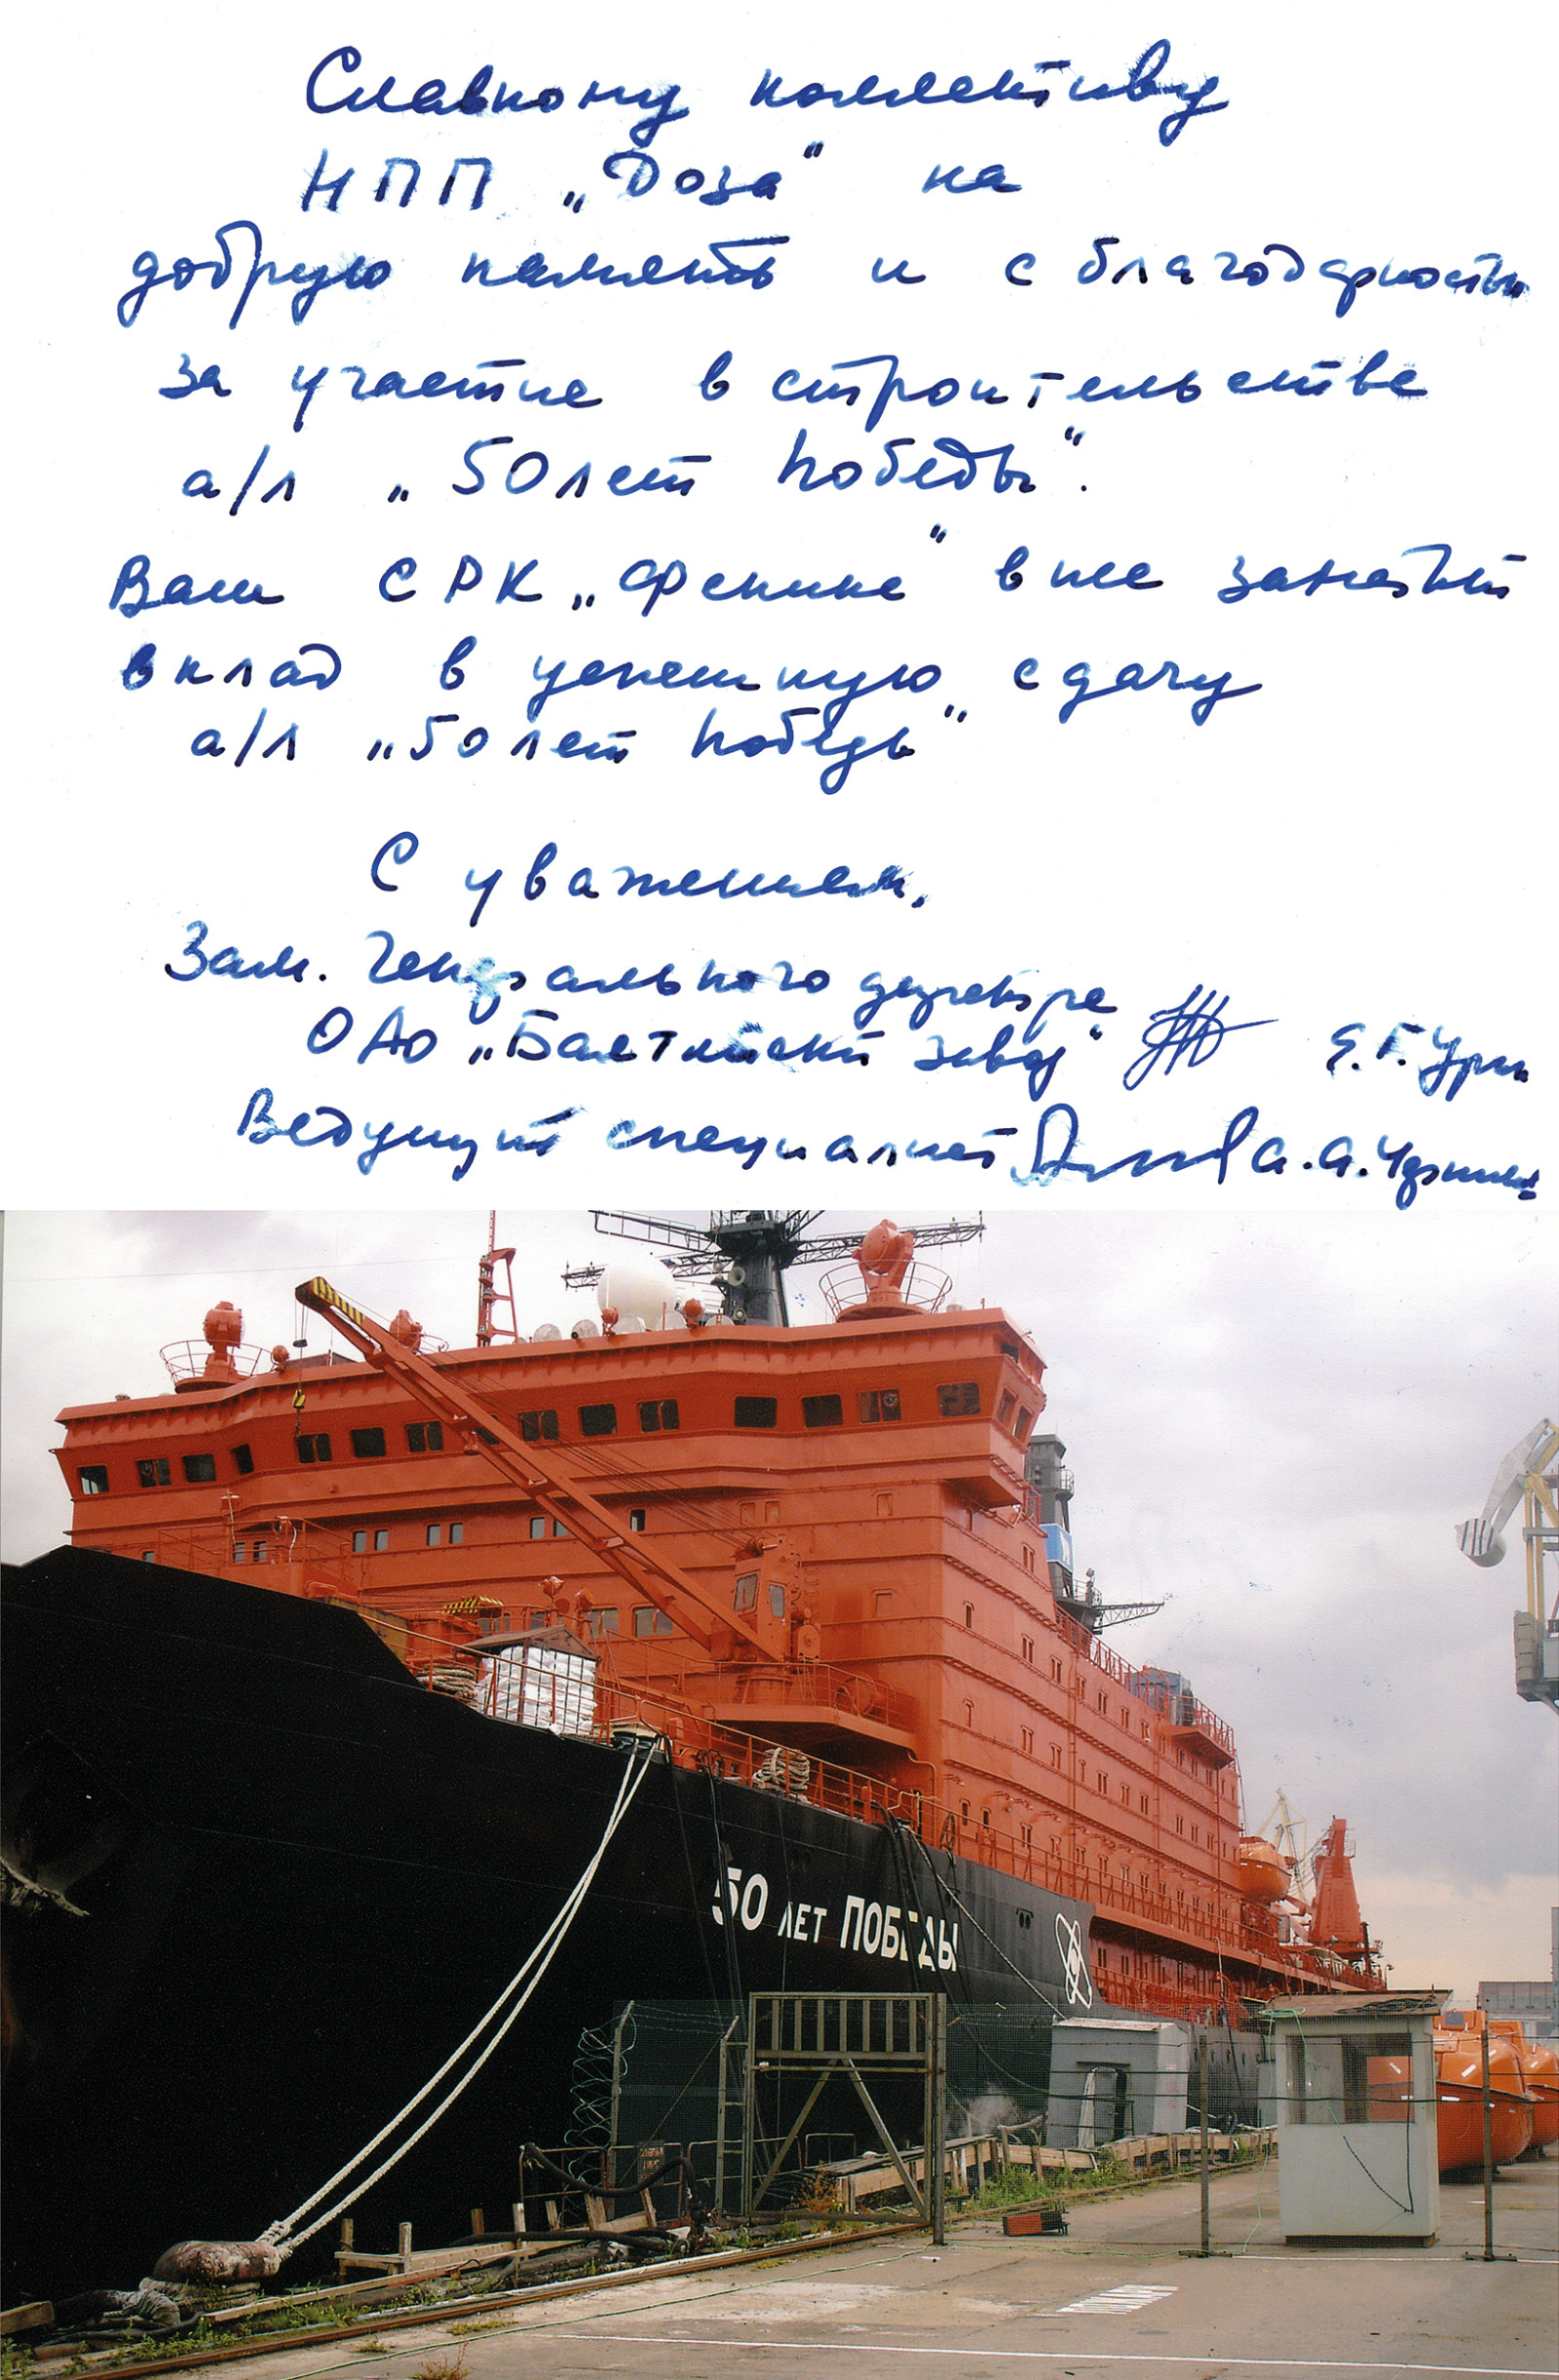 Славному коллективу
НПП „Доза“ на
добрую память и с благодарностью
за участие в строительстве
а/л „50 лет Победы“.
Ваш СРК „Феникс“ внес заметный
вклад в успешную сдачу
а/л „50 лет Победы“
С уважением,
Зам. генерального директора
ОАО „Балтийский завод“ Е.Г.
Ведущий специалист А.А.
50 ЛЕТ ПОБЕДЫ